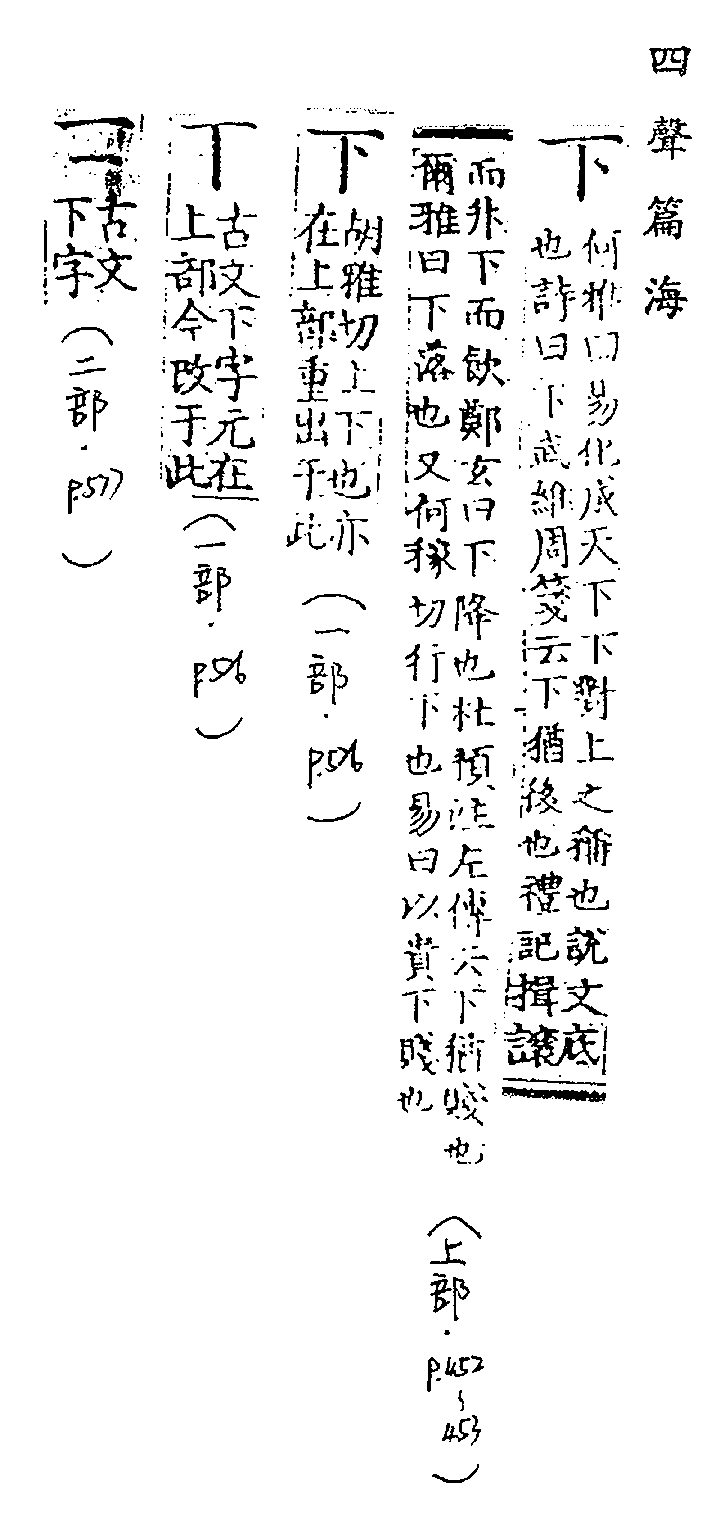 四聲篇海
下
何雅切易化成天下下對上之稱也說文底
也詩曰下武維周箋云下猶後也禮記揖讓
而升下而飲鄭玄曰下降也杜預注左傳云下猶賤也
爾雅曰下落也又何稼切行下也易曰以貴下賤也
(上部·p.452~453)
下
胡雅切上下也亦
在上部重出于此
(一部·p.506)
丅
古文下字元在
上部今改于此
(一部·p.506)
古文
下字
(二部·p.577)